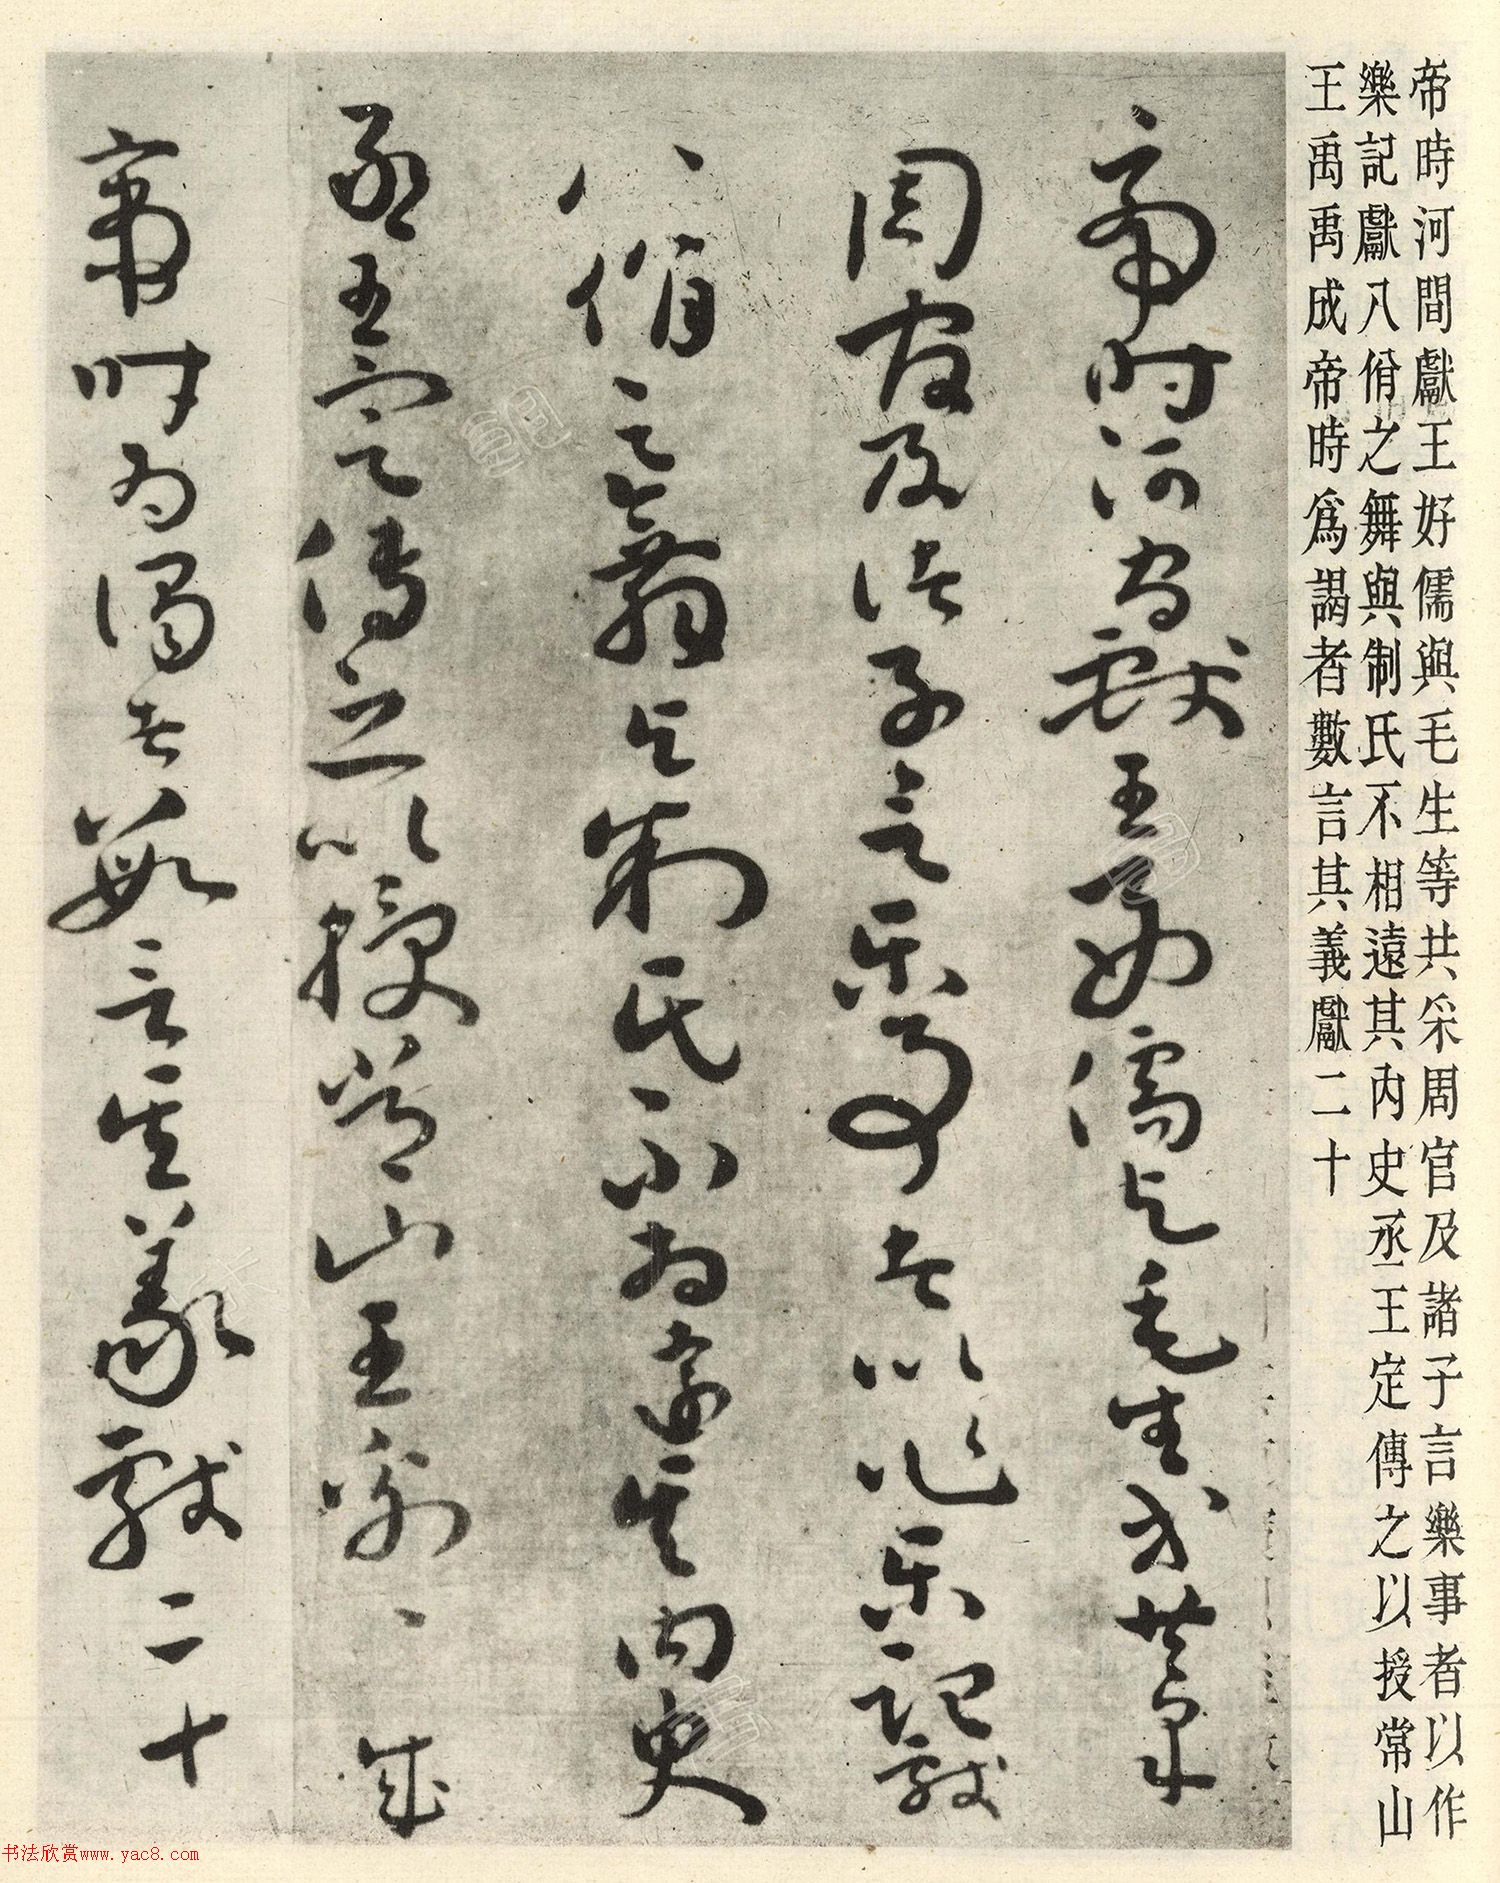 帝時河間獻王好儒與毛生等共采周官及諸子言樂事者以作
樂記獻八佾之舞與制氏不相遠其內史丞王定傳之以授常山
王禹禹成帝時爲謁者數言其義獻二十
帝時河間獻王好儒與毛生等共采
周官及諸子言樂事者以作樂記獻
八佾之舞與制氏不相遠其內史
丞王定傳之以授常山王禹〻成
帝時爲謁者數言其義獻二十
书法欣赏www.yac8.com